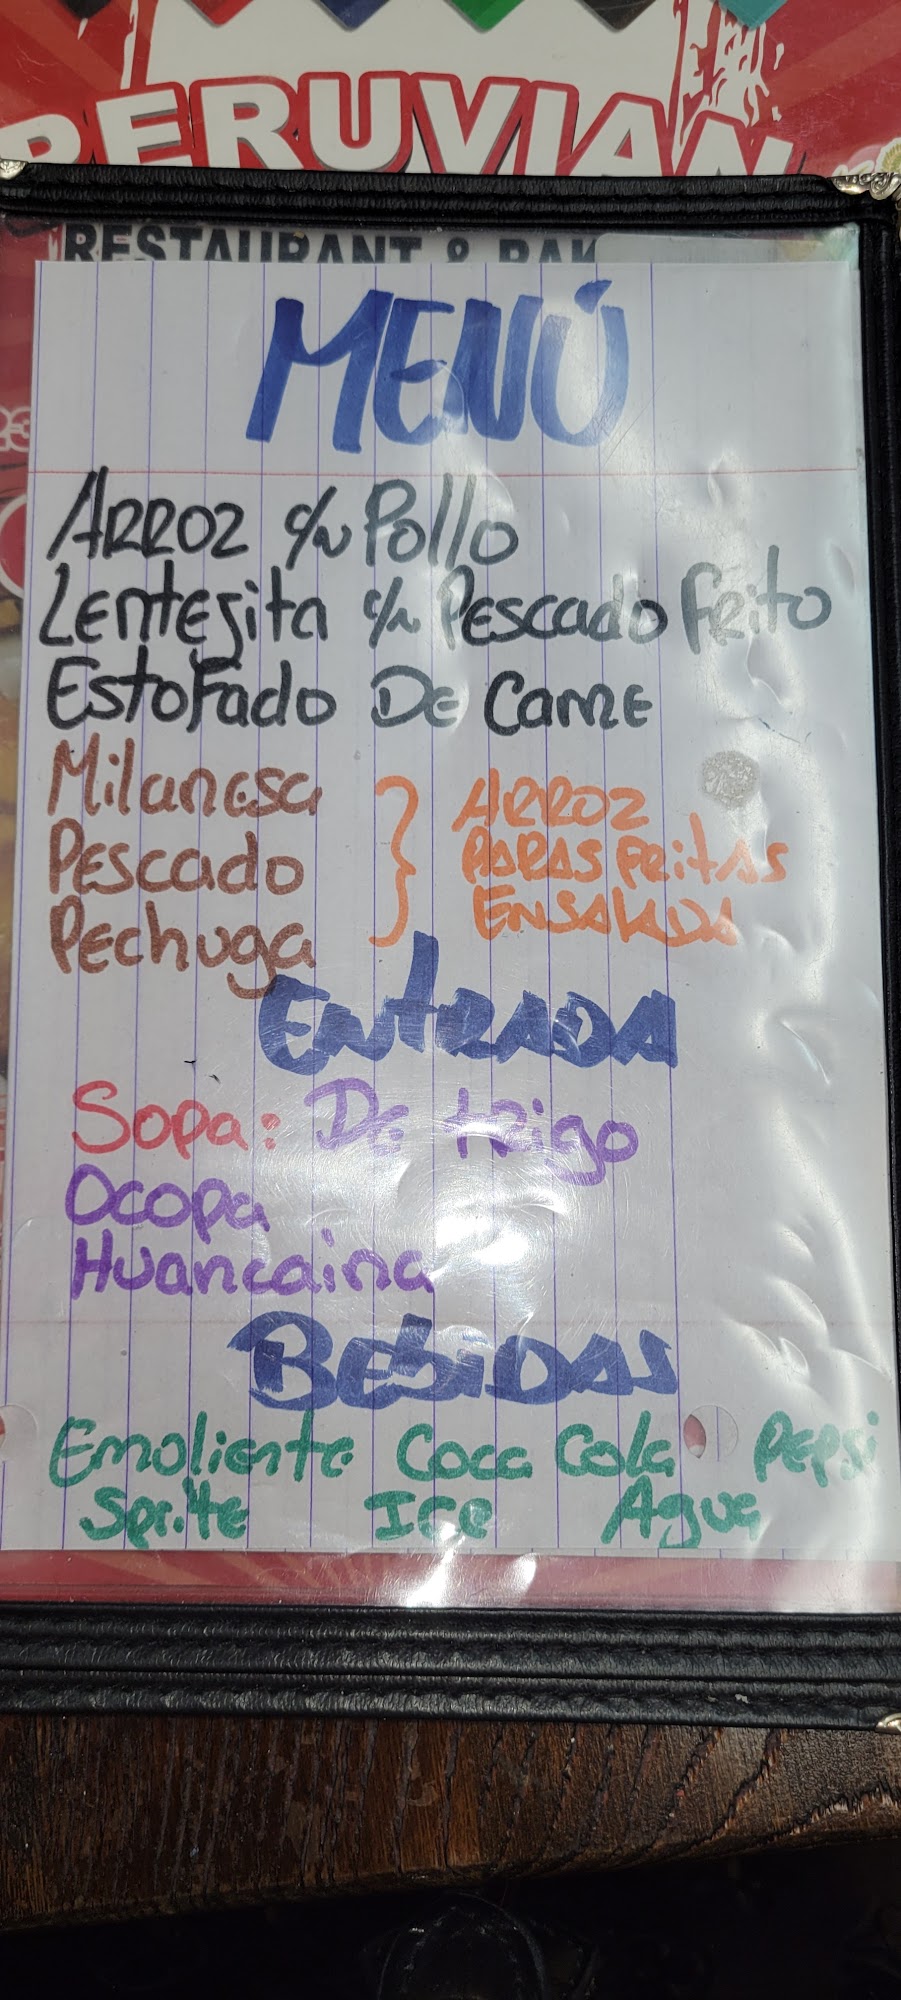 PERUVIAN
RESTAURANT & BAR
MENÚ
ARROZ c/n Pollo
Lentejita c/n Pescado Frito
Estofado De Carne
Milanesa
Pescado
Pechuga
ARROZ
PAPAS FRITAS
ENSALADA
ENTRADA
Sopa: De trigo
Ocopa
Huancaina
BEBIDAS
Emoliente Coca Cola Pepsi
Sprite ICE Agua